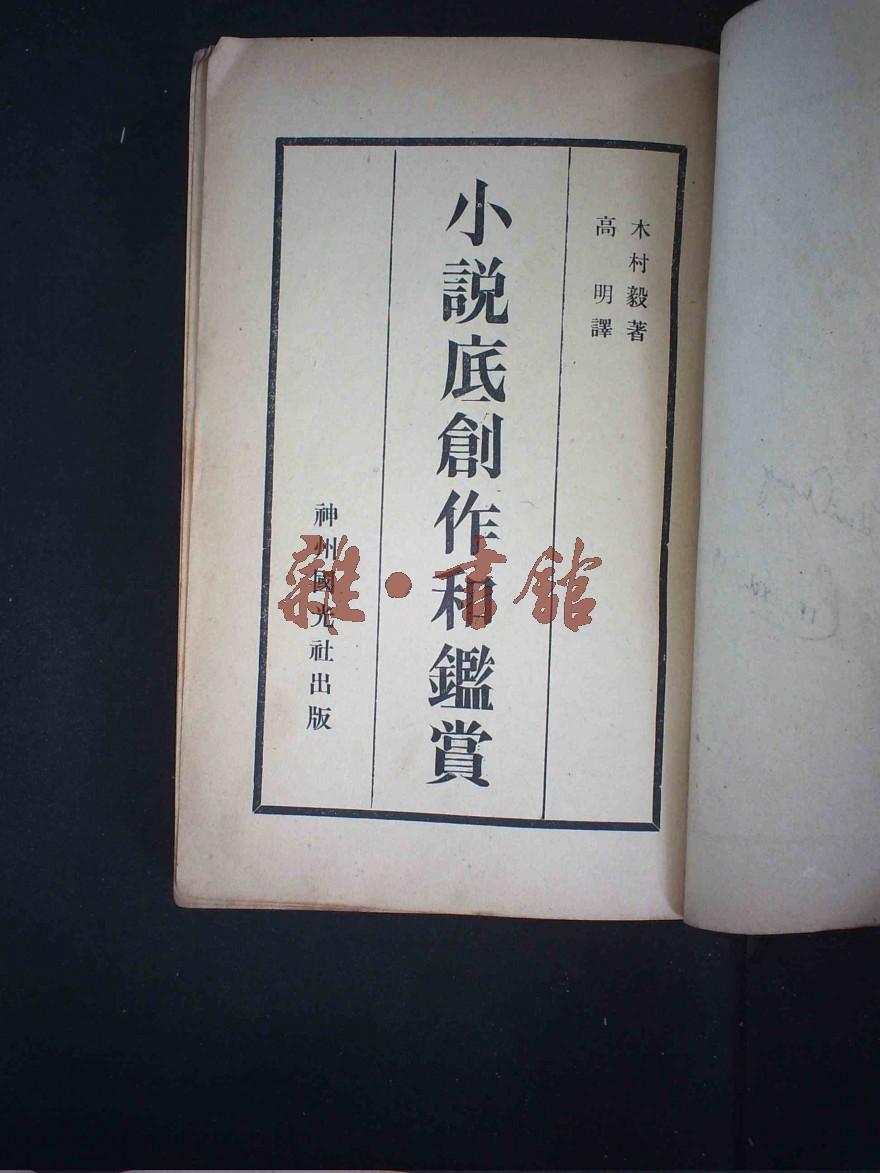 木村毅著
高明譯
小説底創作和鑑賞
神州國光社出版
雜·書館